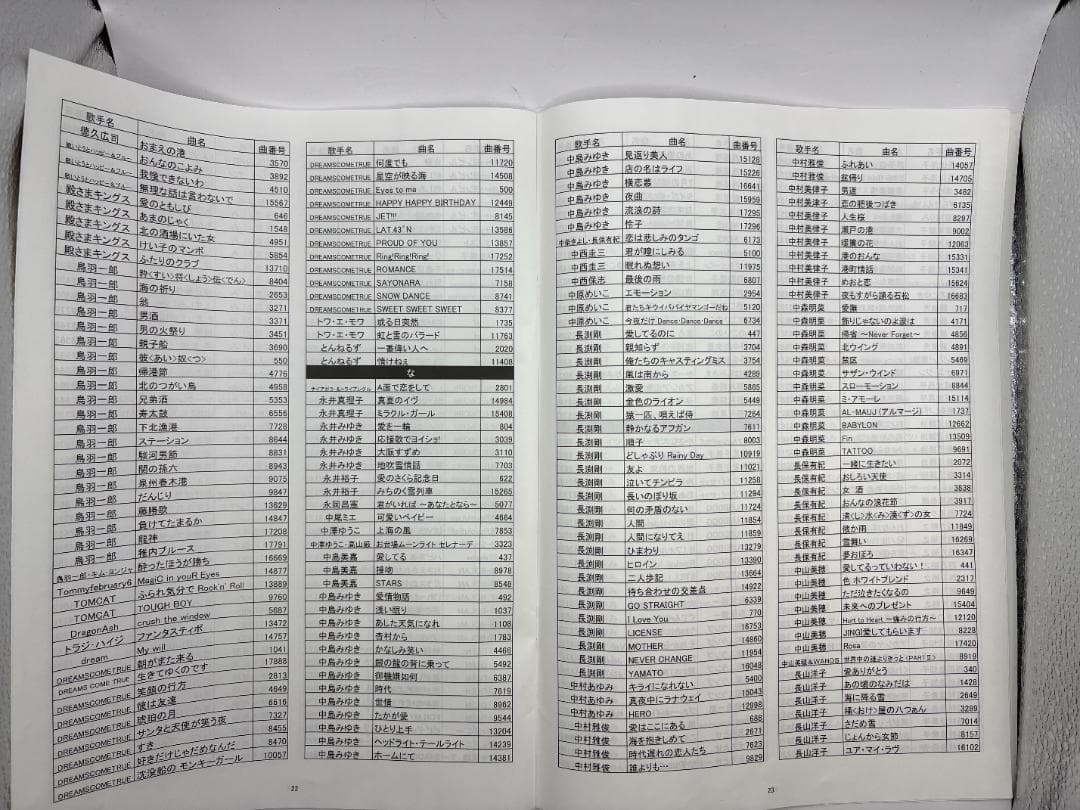 歌手名 曲名 曲番号
徳久広司 おまえの港 3570
敏いとうとハッピー&ブルー おんなのこよみ 3892
敏いとうとハッピー&ブルー 我慢できないわ 4510
敏いとうとハッピー&ブルー 無理な話は言わないで 15567
殿さまキングス 愛のともしび 646
殿さまキングス あまのじゃく 1548
殿さまキングス 北の酒場にいた女 4951
殿さまキングス けい子のマンボ 5864
殿さまキングス ふたりのクラブ 13710
鳥羽一郎 粋<すい>将<しょう>伝<でん> 8404
鳥羽一郎 海の祈り 2653
鳥羽一郎 翁 3271
鳥羽一郎 男酒 3371
鳥羽一郎 男の火祭り 3451
鳥羽一郎 親子船 3690
鳥羽一郎 彼<あい>奴<つ> 550
鳥羽一郎 帰港節 4776
鳥羽一郎 北のつがい鳥 4958
鳥羽一郎 兄弟酒 5353
鳥羽一郎 寿太鼓 6556
鳥羽一郎 下北漁港 7728
鳥羽一郎 ステーション 8644
鳥羽一郎 駿河男節 8831
鳥羽一郎 関の孫六 8943
鳥羽一郎 泉州春木港 9075
鳥羽一郎 だんじり 9847
鳥羽一郎 藤勝歌 13629
鳥羽一郎 負けてたまるか 14847
鳥羽一郎 龍神 17208
鳥羽一郎 稚内ブルース 17791
鳥羽一郎・キム・ヨンジャ 酔ったほうが勝ち 16669
Tommyfebruary6 MagiC in youR Eyes 14877
TOMCAT ふられ気分で Rock'n' Roll 13889
TOMCAT TOUGH BOY 9760
DragonAsh crush the window 5687
トラジ・ハイジ ファンタスティポ 13472
dream My will 14757
DREAMSCOMETRUE 朝がまた来る 1041
DREAMS COME TRUE 生きてゆくのです 17888
DREAMSCOMETRUE 笑顔の行方 2813
DREAMSCOMETRUE 彼は友達 4649
DREAMSCOMETRUE 琥珀の月 6616
DREAMSCOMETRUE サンタと天使が笑う夜 7327
DREAMSCOMETRUE すき 8455
DREAMSCOMETRUE 好きだけじゃだめなんだ 8470
DREAMSCOMETRUE 沈没船の モンキーガール 10057
歌手名 曲名 曲番号
DREAMSCOMETRUE 何度でも 11720
DREAMSCOMETRUE 星空が映る海 14508
DREAMSCOMETRUE Eyes to me 500
DREAMSCOMETRUE HAPPY HAPPY BIRTHDAY 12449
DREAMSCOMETRUE JET!!! 8145
DREAMSCOMETRUE LAT.43°N 13586
DREAMSCOMETRUE PROUD OF YOU 13857
DREAMSCOMETRUE Ring!Ring!Ring! 17252
DREAMSCOMETRUE ROMANCE 17514
DREAMSCOMETRUE SAYONARA 7158
DREAMSCOMETRUE SNOW DANCE 8741
DREAMSCOMETRUE SWEET SWEET SWEET 8377
トワ・エ・モワ 或る日突然 1735
トワ・エ・モワ 虹と雪のバラード 11763
とんねるず 一番偉い人へ 2020
とんねるず 情けねぇ 11408
な
ナイアガラ・トライアングル A面で恋をして 2801
永井真理子 真夏のイヴ 14984
永井真理子 ミラクル・ガール 15408
永井みゆき 愛を一輪 804
永井みゆき 応援歌でヨイショ! 3039
永井みゆき 大阪すずめ 3110
永井みゆき 地吹雪情話 7703
永井裕子 愛のさくら記念日 622
永井裕子 みちのく雪列車 15265
永岡昌憲 君がいれば ～あなたとなら～ 5077
中尾ミエ 可愛いベイビー 4664
中澤ゆうこ 上海の風 7853
中澤ゆうこ・高山厳 お台場ムーンライト セレナーデ 3323
中島美嘉 愛してる 437
中島美嘉 接吻 8978
中島美嘉 STARS 8548
中島みゆき 愛情物語 492
中島みゆき 浅い眠り 1037
中島みゆき あした天気になれ 1108
中島みゆき 杏村から 1783
中島みゆき かなしみ笑い 4468
中島みゆき 銀の龍の背に乗って 5492
中島みゆき 御機嫌如何 6387
中島みゆき 時代 7619
中島みゆき 世情 8962
中島みゆき たかが愛 9544
中島みゆき ひとり上手 13204
中島みゆき ヘッドライト・テールライト 14239
中島みゆき ホームにて 14381
22
歌手名 曲名 曲番号
中島みゆき 見返り美人 15128
中島みゆき 店の名はライフ 15226
中島みゆき 横恋慕 16641
中島みゆき 夜曲 15959
中島みゆき 流浪の詩 17295
中島みゆき 怜子 17296
中条きよし・長保有紀 恋は悲しみのタンゴ 6173
中西圭三 君が瞳にしみる 5100
中西圭三 眠れぬ想い 11975
中西保志 最後の雨 6807
中原めいこ エモーション 2954
中原めいこ 君たちキウイパパイヤマンゴーだね 5120
中原めいこ 今夜だけ Dance・Dance・Dance 6734
長渕剛 愛してるのに 447
長渕剛 親知らず 3704
長渕剛 俺たちのキャスティングミス 3754
長渕剛 風は南から 4289
長渕剛 激愛 5865
長渕剛 金色のライオン 5449
長渕剛 第一匹、咀えば侍 7264
長渕剛 静かなるアフガン 7611
長渕剛 順子 8003
長渕剛 どしゃぶり Rainy Day 10919
長渕剛 友よ 11021
長渕剛 泣いてチンピラ 11258
長渕剛 長いのぼり坂 11294
長渕剛 何の矛盾のない 11724
長渕剛 人間 11854
長渕剛 人間になりてえ 11859
長渕剛 ひまわり 13279
長渕剛 ヒロイン 13390
長渕剛 二人歩記 13664
長渕剛 待ち合わせの交差点 14922
長渕剛 GO STRAIGHT 6339
長渕剛 I Love You 770
長渕剛 LICENSE 16753
長渕剛 MOTHER 14860
長渕剛 NEVER CHANGE 11954
長渕剛 YAMATO 16048
中村あゆみ キライになれない 5400
中村あゆみ 真夜中にラナウェイ 15043
中村あゆみ HERO 12998
中村雅俊 愛はここにある 688
中村雅俊 海を抱きしめて 2671
中村雅俊 時代遅れの恋人たち 7623
中村雅俊 誰よりも… 9829
歌手名 曲名 曲番号
中村雅俊 ふれあい 14057
中村雅俊 盆帰り 14705
中村美律子 男道 3482
中村美律子 恋の肥後つばき 6135
中村美律子 人生桜 8297
中村美律子 瀬戸の港 9002
中村美律子 壇薫の花 12063
中村美律子 港のおんな 15331
中村美律子 港町情話 15341
中村美律子 めおと恋 15624
中村美律子 夜もすがら踊る石松 16683
中森明菜 愛撫 717
中森明菜 飾りじゃないのよ涙は 4171
中森明菜 帰省 ～Never Forget～ 4856
中森明菜 北ウイング 4891
中森明菜 禁区 5469
中森明菜 サザン・ウインド 6971
中森明菜 スローモーション 8844
中森明菜 ミ・アモーレ 15114
中森明菜 AL-MAUJ (アルマージ) 1737
中森明菜 BABYLON 12662
中森明菜 Fin 13509
中森明菜 TATTOO 9691
長保有紀 一緒に生きたい 2072
長保有紀 おしろい天使 3314
長保有紀 女 酒 3638
長保有紀 おんなの浪花節 3917
長保有紀 清<し>水<み>湧<ず>の女 7724
長保有紀 他か雨 11849
長保有紀 雪舞い 16269
長保有紀 夢おぼろ 16347
中山美穂 愛してるっていわない! 441
中山美穂 色 ホワイトブレンド 2317
中山美穂 ただ泣きたくなるの 9649
中山美穂 未来へのプレゼント 15404
中山美穂 Hurt to Heart ～痛みの行方～ 12120
中山美穂 JINGI愛してもらいます 8228
中山美穂 Rosa 17420
中山美穂&WANDS 世界中の誰よりきっと<PARTⅡ> 8919
長山洋子 愛ありがとう 340
長山洋子 あの頃のなみだは 1428
長山洋子 海に降る雪 2649
長山洋子 桶<おけ>屋の八つぁん 3289
長山洋子 さだめ雪 7014
長山洋子 じょんから女節 8157
長山洋子 ユア・マイ・ラヴ 16102
23